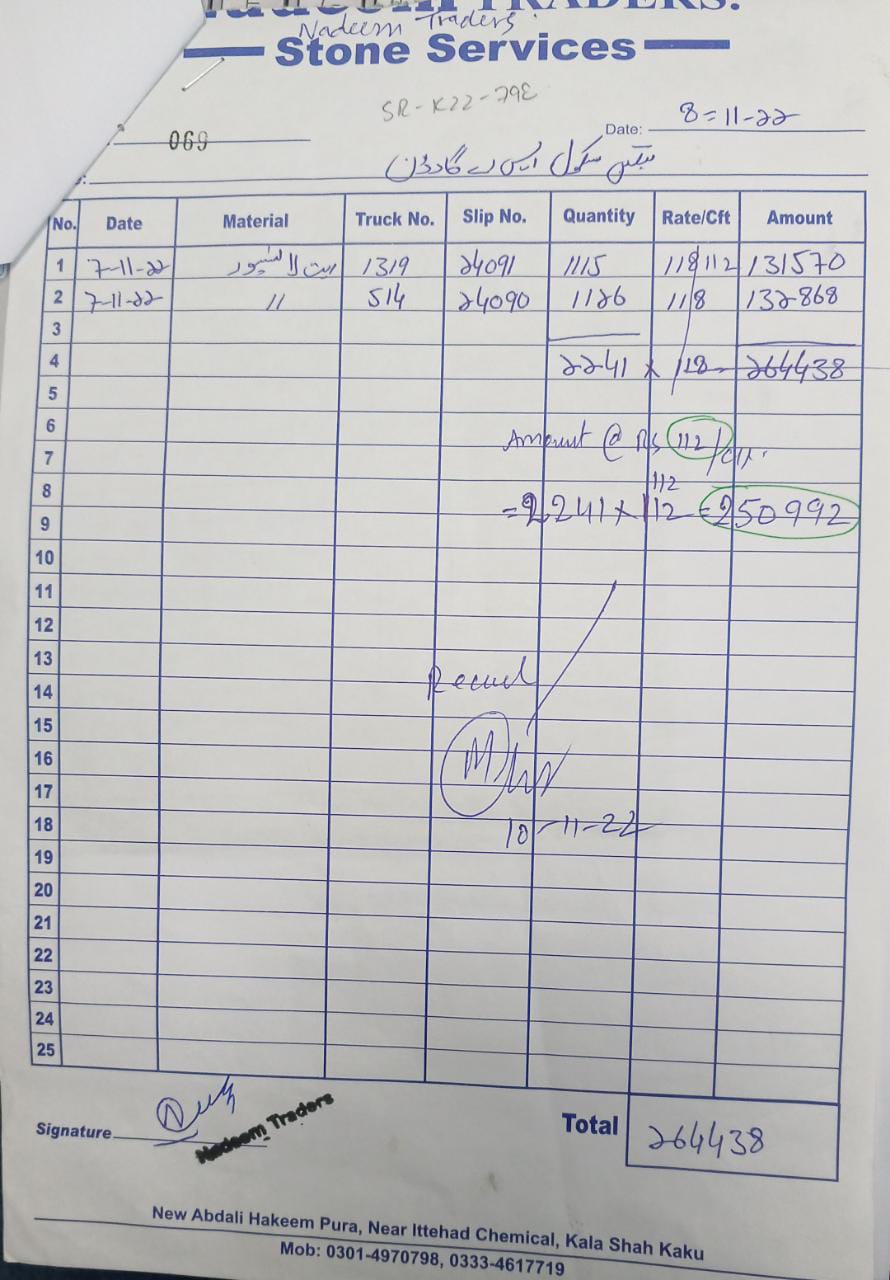 TRADERS.
Nadeem Traders.
Stone Services
SR-K22-79E
069
Date: 8=11-22
سکول ایس اے گارڈن
No. Date Material Truck No. Slip No. Quantity Rate/Cft Amount
1 7-11-22 ریت 1319 24091 1115 118 112 131570
2 7-11-22 〃 514 24090 1126 118 132868
3
4 2241 x 118 264438
5
6
Amount @ Rs 112/Cft.
7
8 112
9 =2241x112 = 250992
10
11
12
13
14
15
16
17
18 10-11-22
19
20
21
22
23
24
25
Signature
Nadeem Traders
Total 264438
New Abdali Hakeem Pura, Near Ittehad Chemical, Kala Shah Kaku
Mob: 0301-4970798, 0333-4617719